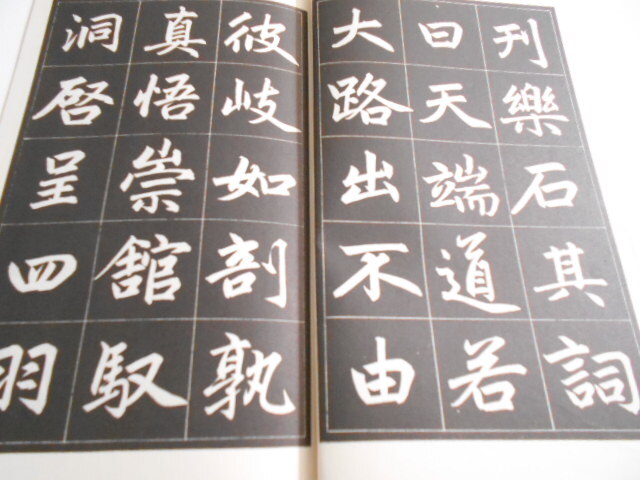 刊樂石其詞
曰天端道若
大路出不由
彼岐如剖孰
真悟崇館馭
洞啓呈四羽